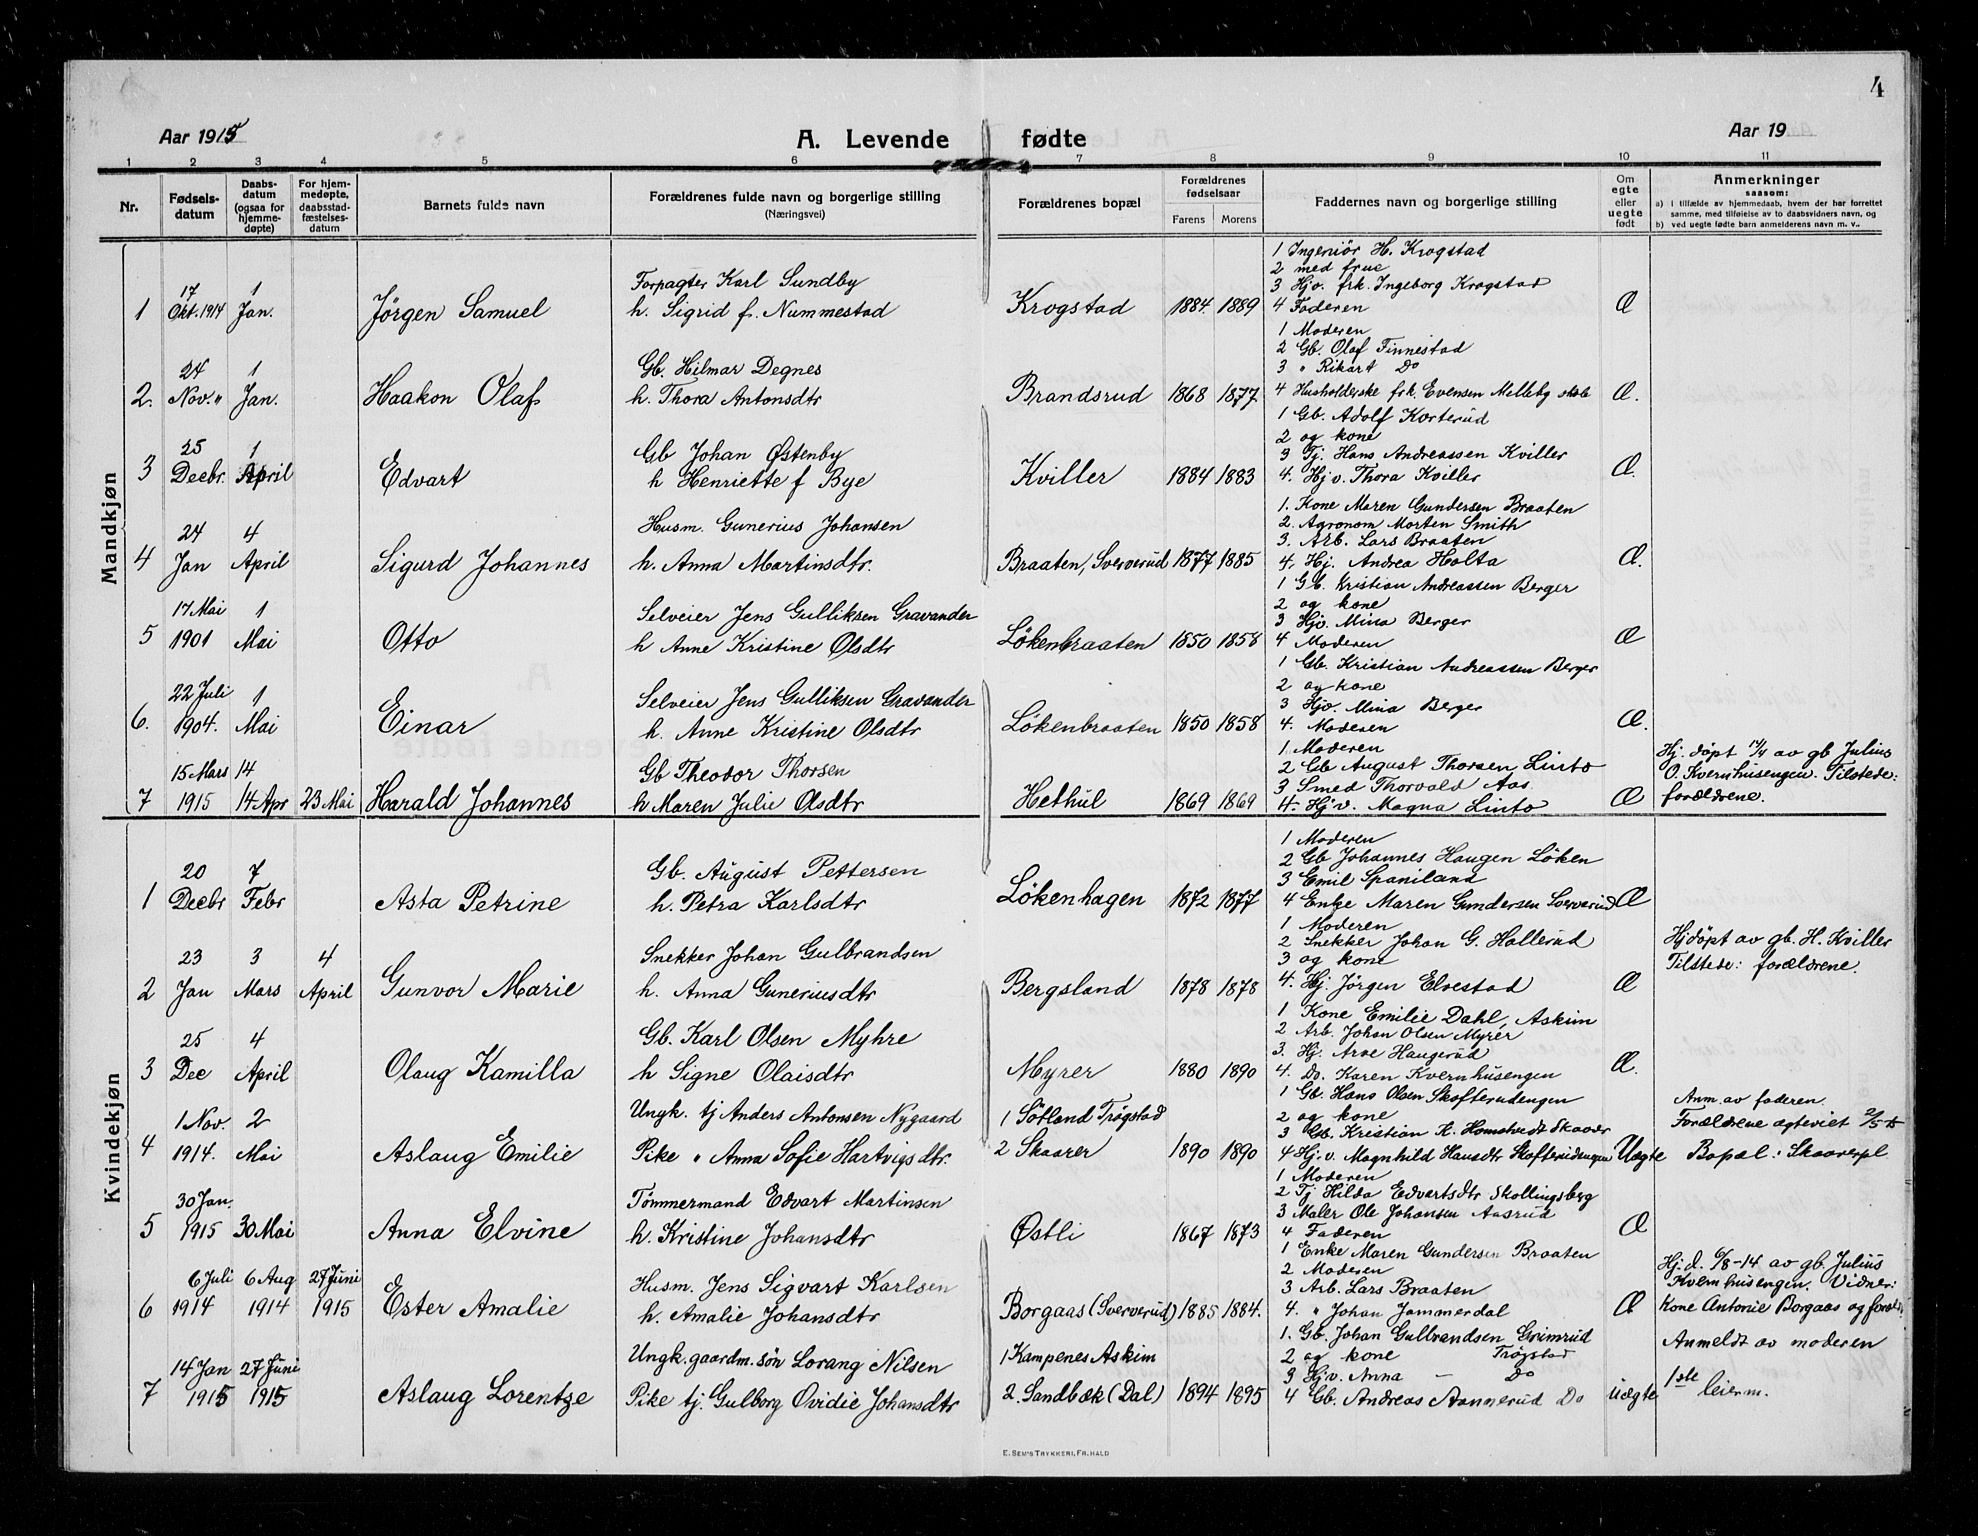 4
Aar 1915
A. Levende fødte
Aar 19
1 2 3 4 5 6 7 8 9 10 11
Nr.
Fødsels-
datum
Daabs-
datum
(ogsaa for
hjemme-
døpte)
For hjem-
medøpte,
daabsstad-
fæstelses-
datum
Barnets fulde navn
Forældrenes fulde navn og borgerlige stilling
(Næringsvei)
Forældrenes bopæl
Forældrenes
fødselsaar
Farens
Morens
Faddernes navn og borgerlige stilling
Om
egte
eller
uegte
født
Anmerkninger
saasom:
a) i tilfælde av hjemmedaab, hvem der har forrettet
samme, med tilføielse av to daabsvidners navn, og
b) ved uegte fødte barn anmelderens navn m. v..
Mandkjøn
1
17
Okt. 1914
1
Jan.
Jørgen Samuel
Forpagter Karl Sundby
h. Sigrid f. Nummestad
Krogstad
1884. 1889
1 Ingeniør H. Krogstad
2 med frue
3 Hjv. frk. Ingeborg Krogstad
4 Faderen
Æ
2.
24
Nov. "
1
Jan.
Haakon Olaf
Gb. Hilmar Degnes
h. Thora Antonsdtr
Brandsrud
1868 1877
1 Moderen
2 Gb. Olaf Finnestad
3 " Rikart Do
4 Husholderske frk. Evensen Melleby skole
Æ.
3
25
Decbr.
1
April
Edvart
Gb Johan Østenby
h Henriette f Bye
Kviller
1884 1883
1 Gb. Adolf Korterud
2 og kone
3 Tj. Hans Andreassen Kviller
4. Hjv. Thora Kviller
Æ.
4
24
Jan
4
April
Sigurd Johannes
Husm. Gunerius Johansen
h. Anna Martinsdtr.
Braaten, Sververud
1877 1885
1. Kone Maren Gundersen Braaten
2. Agronom Morten Smith
3. Arb. Lars Braaten
4. Hj. Andrea Holta
Æ.
5
17 Mai
1901
1
Mai
Otto
Selveier Jens Gulliksen Gravander
h Anne Kristine Olsdtr
Løkenbraaten
1850 1858
1 Gb. Kristian Andreassen Berger
2 og kone
3 Hjv. Mina Berger
4 Moderen
Æ
6.
22 Juli
1904.
1
Mai
Einar
Selveier Jens Gulliksen Gravander
h. Anne Kristine Olsdtr
Løkenbraaten
1850 1858
1 Gb. Kristian Andreassen Berger
2 og kone
3 Hjv. Mina Berger
4. Moderen
Æ.
7
15 Mars
1915
14
14 Apr
23 Mai
Harald Johannes
Gb Theodor Thorsen
h Maren Julie Olsdtr
Hethul
1869 1869
1 Moderen
2 Gb August Thorsen Linto
3 Smed Thorvald Aas
4. Hjv. Magna Linto
Æ
Hj. døpt 14/4 av gb Julius
O. Kvernhusengen. Tilstede:
forældrene.
Kvindekjøn
1
20
Decbr
7
Febr
Asta Petrine
Gb. August Pettersen
h. Petra Karlsdtr
Løkenhagen
1872 1877
1 Moderen
2 Gb Johannes Haugen Løken
3 Emil Spaniland
4 Enke Maren Gundersen Sververud
Æ
2
23
Jan
3
Mars
4
April
Gunvor Marie
Snekker Johan Gulbrandsen
h. Anna Guneriusdtr
Bergsland
1878 1878
1 Moderen
2 Snekker Johan G. Hallerud
3 og kone
4. Hj. Jørgen Elvestad
Æ
Hjdøpt av gb. H. Kviller
Tilstede: forældrene.
3
25
Dec
4
April
Olaug Kamilla
Gb. Karl Olsen Myhre
h Signe Olaisdtr
Myrer
1880 1890
1 Kone Emilie Dahl, Askim
2 Arb. Johan Olsen Myrer
3. Hj. Arve Haugerud
4. Do. Karen Kvernhusengen
Æ.
4
1 Nov.
1914.
2
Mai
Aslaug Emilie
Ungk. tj Anders Antonsen Nygaard
Pike " Anna Sofie Hartvigsdtr.
1 Søtland Trøgstad
2 Skaarer
1890 1890
1 Gb. Hans Olsen Skofterudengen
2 og kone
3 Gb. Kristian H. Homstvedt Skaarer
4 Hjv. Magnhild Hansdtr Skofterudengen
Uægte
Anm. av faderen.
Forældrene egteviet 2/5-15
Bopæl: Skaarerpl.
5
30 Jan.
1915
30 Mai
Anna Elvine
Tømmermand Edvart Martinsen
h. Kristine Johansdtr
Østli
1867 1873
1 Moderen
2 Tj Hilda Edvartsdtr Skollingsberg
3 Maler Ole Johansen Aasrud
4 Faderen
Æ
6
6 Juli
1914
6 Aug
1914
27 Juni
1915
Ester Amalie
Husm. Jens Sigvart Karlsen
h. Amalie Johansdtr
Borgaas (Sververud)
1885 1884.
1 Enke Maren Gundersen Braaten
2 Moderen
3 Arb. Lars Braaten
4. " Johan Jammerdal
Æ
Hj. d. 6/8-14 av gb. Julius
Kvernhusengen. Vidner:
Kone Antonie Borgaas og foræld.
7
14 Jan
1915
27 Juni
1915
Aslaug Lorentze
Ungk. gaardm. søn Lorang Nilsen
Pike tj. Gulborg Ovidie Johansdtr
1 Kampenes Askim
2. Sandbæk (Dal)
1894 1895
1. Gb. Johan Gulbrandsen Grimrud
2 og kone Trøgstad
3 Hjv. Anna – Do
4 Gb. Andreas Aamnerud Do
Uægte
Anmeldt av moderen
1ste leierm.
E. SEM'S TRYKKERI, FR.HALD